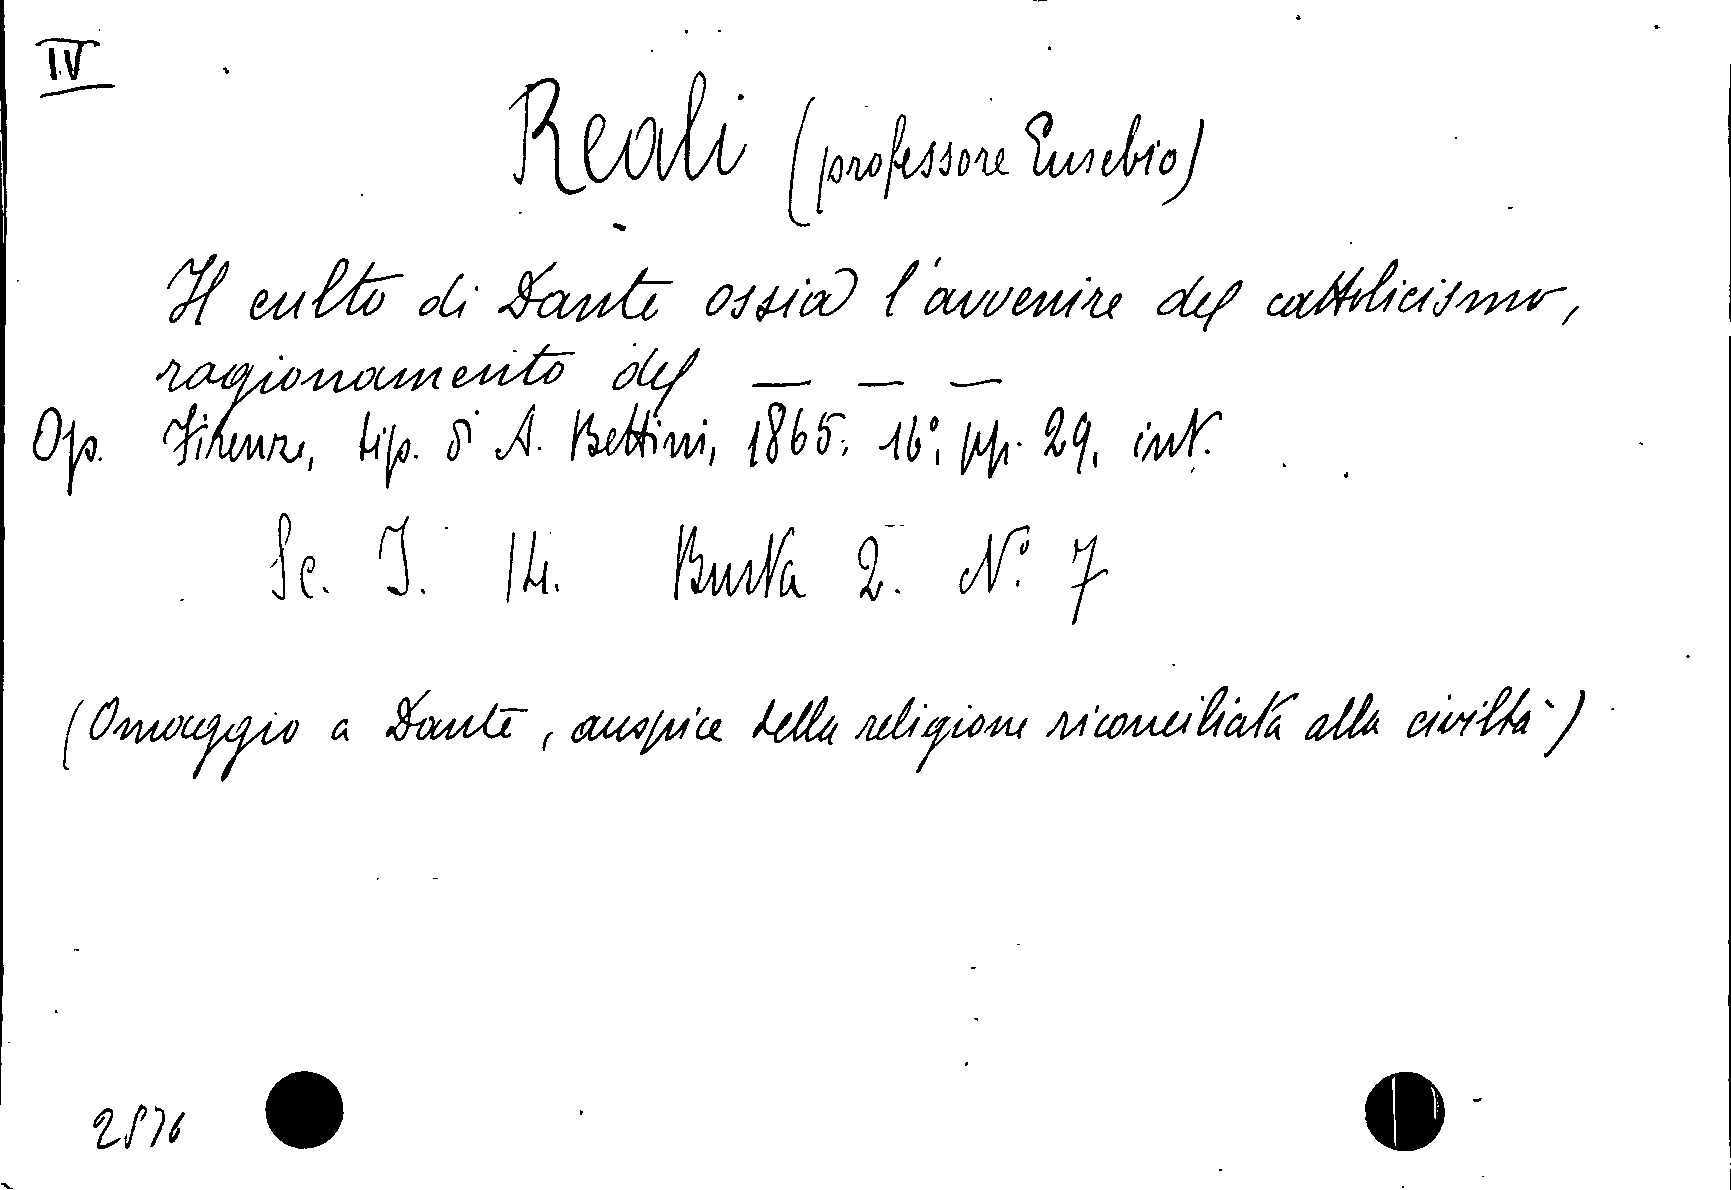 IV
Reali (professore Eusebio)
Il culto di Dante ossia l'avvenire del cattolicismo,
ragionamento del — — —
Op. Firenze, tip. di A. Bettini, 1865. 16°, pp. 29, int.
Sc. I. 14. Busta 2. N.° 7
(Omaggio a Dante, auspice della religione riconciliata alla civiltà)
2876